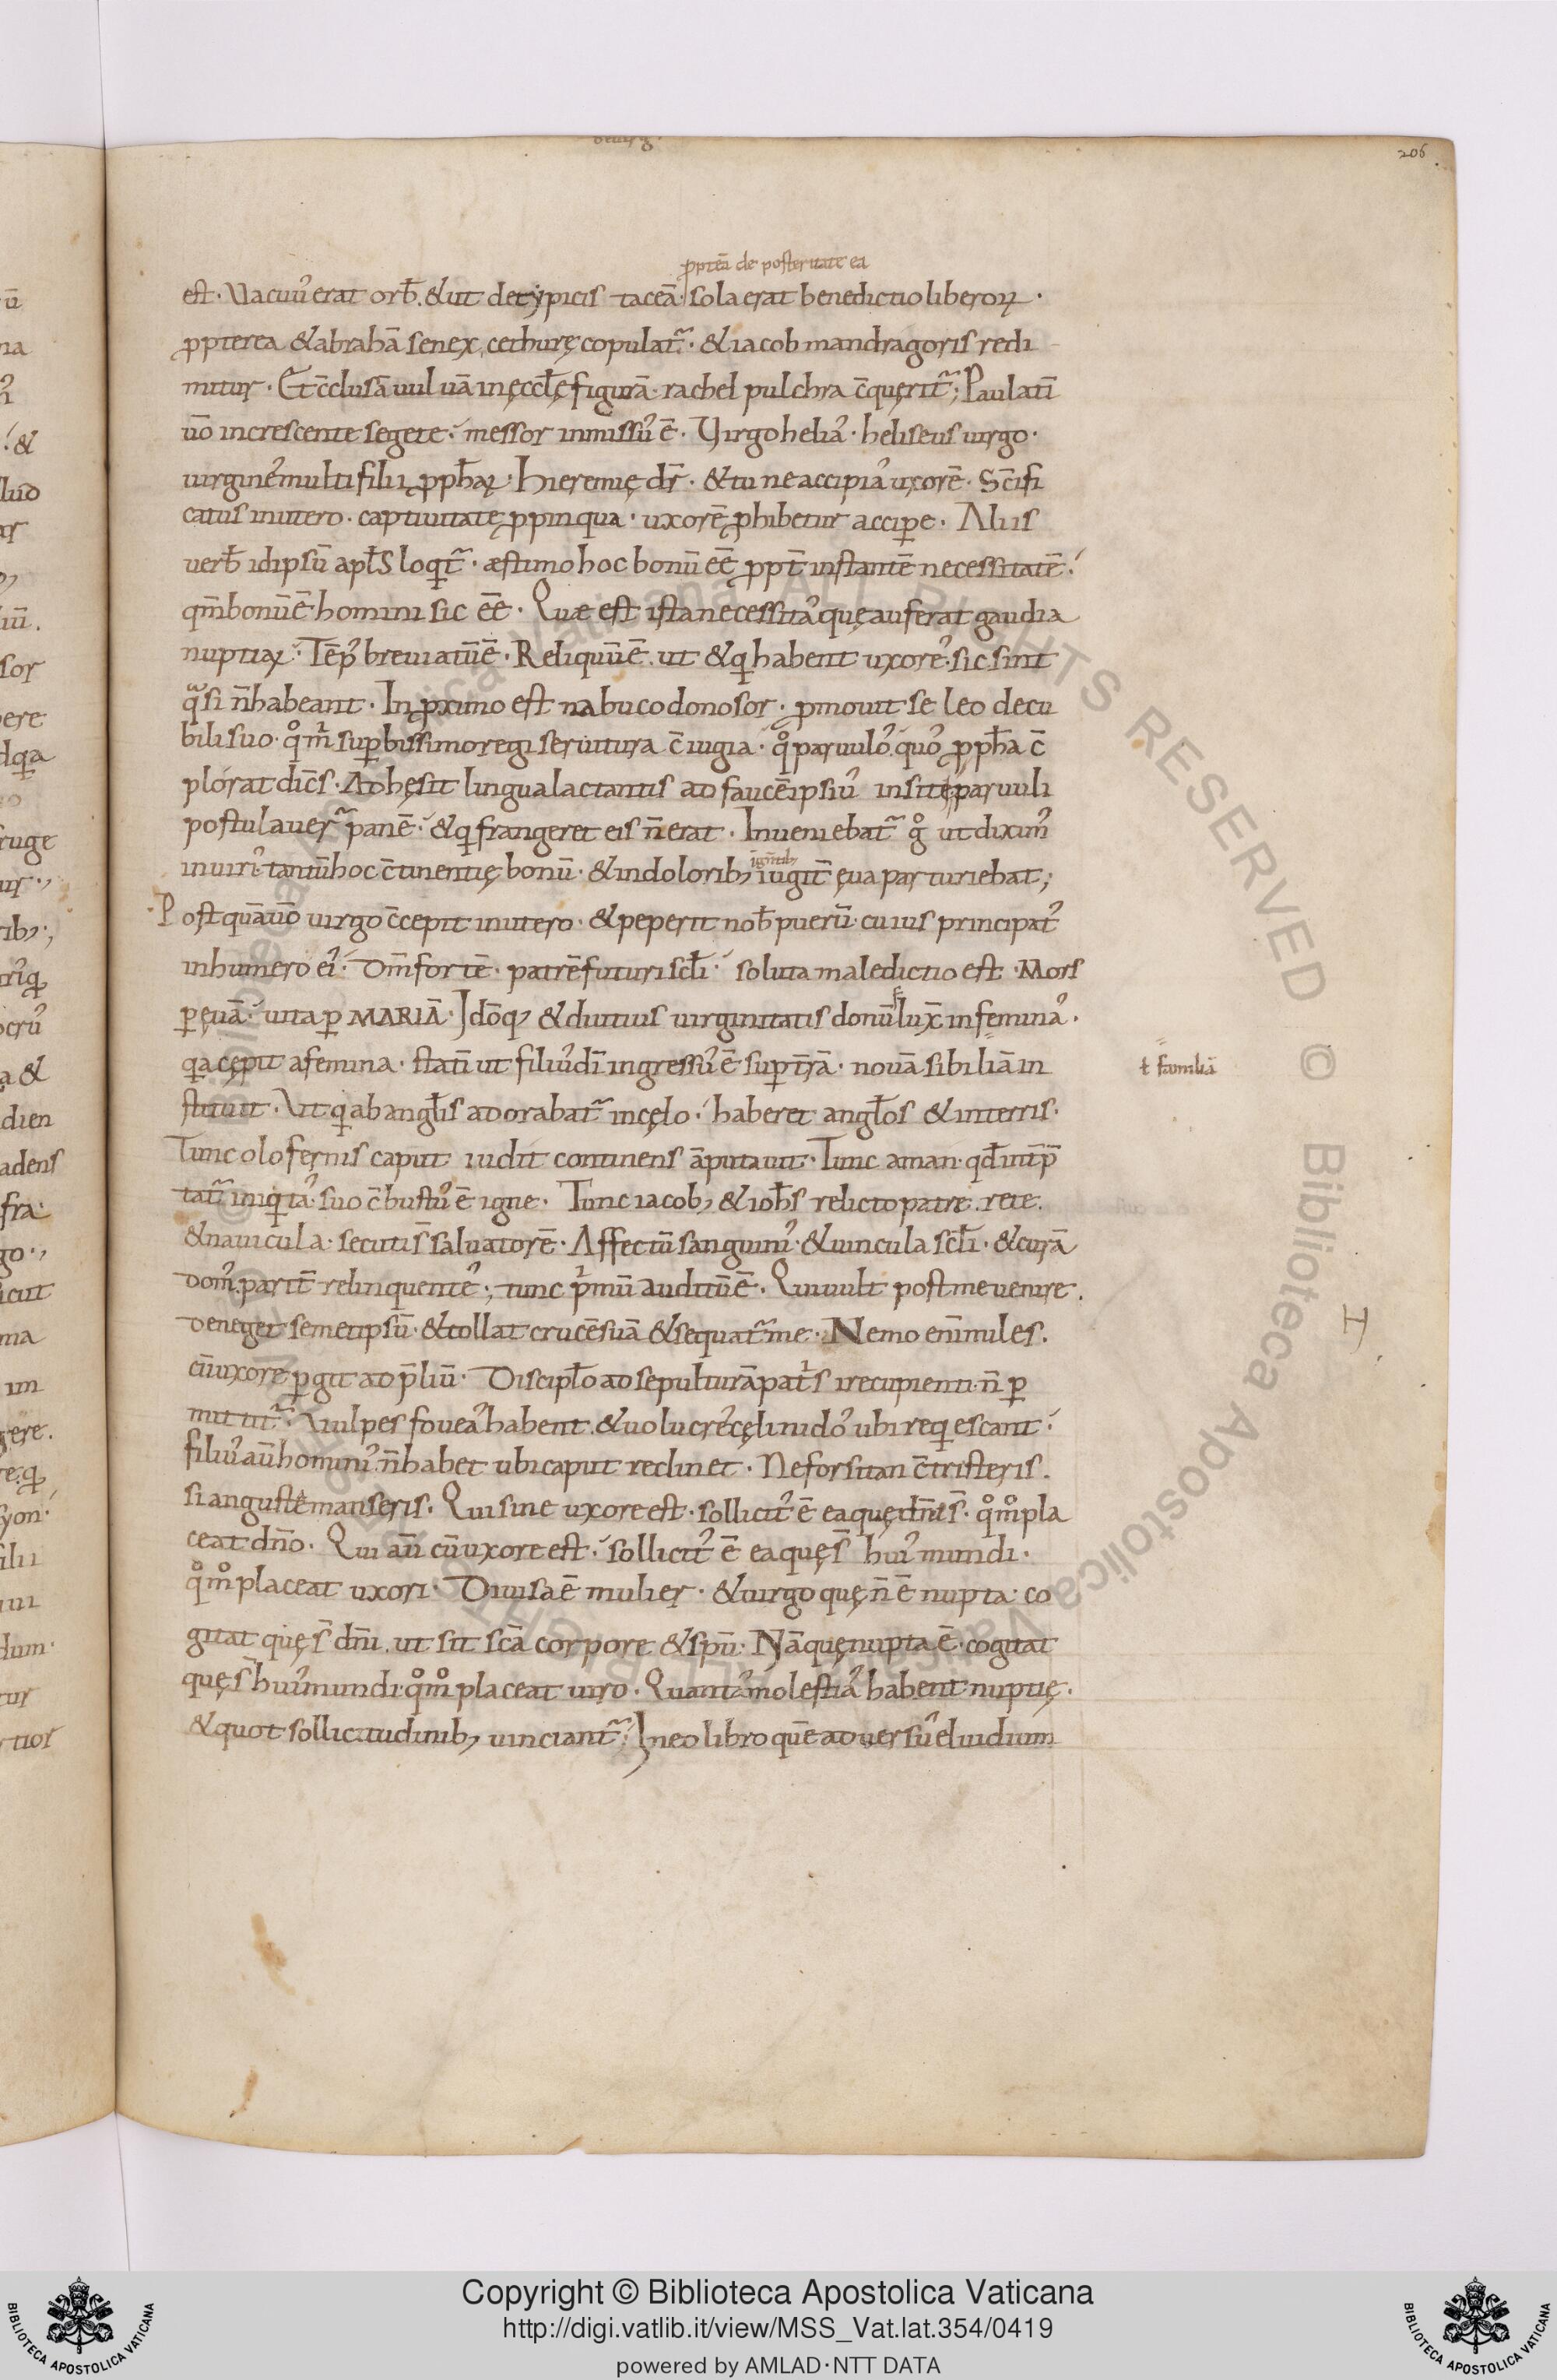 206
ꝓpteā de posteritate ea
est · Vacuuˀ erat orƀ. & ut de typicis taceā · sola erat benedictio liberoꝝ ·
ꝓpterea & abrahā senex cethurę copulat᷒ · & iacob mandragoris redi
mitur · Et c̄clusā uuluā in ęccłę figurā · rachel pulchra c̄querit᷒; Paulatī
ūo increscente segete · messor inmissuˀ ē · Virgo heliaˀ · heliseus uirgo ·
uirgineˀ multi filii ꝓpħaꝝ · Hieremię dr̄ · & tu ne accipiaˀ uxorē · Sc̄ifi
catus in utero · captiuitate ꝓpinqua · uxorē ꝓhibetur accipe · Aliis
uerƀ idipsū apłs loqit᷒ · æstimo hoc bonū eē ꝓpt̄ instantē necessitatē ·
qm̄ bonū ē homini sic eē · Quæ est ista necessitaˀ quę auferat gaudia
nuptiaꝝ · Tēpˀ breuiatū ē · Reliquū ē ut & qi habent uxoreˀ · sic sint
qasi n̄ habeant · In ꝓximo est nabucodonosor · ꝓmouit se leo de cu
bili suo · qͦ m̊ suꝑbissimo regi seruitura c̄iugia · qͦ paruuloˀ quoˀ ꝓpħa c̄
plorat dic̄s · Adhęsit lingua lactantis ad faucē ipsiuˀ in siti · paruuli
postulauer᷒ panē · & qi frangeret eis n̄ erat · Inueniebat᷒ gͦ ut diximˀ
in uiriˀ tantū hoc c̄tinentię bonū · & in doloribꝫ iugit̄ ęua parturiebat;
Postquā ūo uirgo c̄cepit in utero · & peperit noƀ puerū · cuius principatˀ
in humero eiˀ · Dm̄ fortē · patrē futuri scłi · soluta maledictio est · Mors
ꝑ ęuā · uita ꝑ MARIĀ · Idōqꝫ & ditius uirginitatis donū flux̄ in feminaˀ ·
qa cępit a femina · statī ut filiuˀ dī ingressuˀ ē suꝑ tr̄ā · nouā sibi liā in
ł familiā
stituit · Ut qi ab angłis adorabat᷒ in cęlo · haberet angłos & in terris ·
Tunc olofernis caput iudit continens āputauit · Tunc aman · qđ intp̄
tat᷒ iniqitaˀ · suo c̄bustuˀ ē igne · Tunc iacobꝫ & ioħs relicto patre · rete ·
& nauicula · secuti s̄ saluatorē · Affectū sanguiniˀ · & uincula scłi · & curā
domˀ parit̄ relinquenteˀ; tunc pͥmū auditū ē · Qui uult post me uenire ·
deneget semetipsū · & tollat crucē suā & sequat᷒ me · Nemo enī miles ·
cū uxore ꝑgit ad p̄liū · Discipło ad sepulturā patͥs ire cupienti · n̄ ꝑ
mittit᷒ · Uulpes foueaˀ habent · & uolucreˀ cęli nidoˀ ubi reqiescant ·
filiuˀ aū hominiˀ n̄ habet ubi caput reclinet · Ne forsitan c̄tristeris ·
si anguste manseris · Qui sine uxore est · sollicitˀ ē ea quę dn̄i s̄ · qͦm̊ pla
ceat dn̄o · Qui aū cū uxore est · sollicitˀ ē ea quę s̄ huiˀ mundi ·
qͦm̊ placeat uxori · Diuisa ē mulier · & uirgo quę n̄ ē nupta · co
gitat quę s̄ dn̄i · ut sit sc̄a corpore & spū · Nā quę nupta ē · cogitat
quę s̄ huiˀ mundi · qͦm̊ placeat uiro · Quantaˀ molestiaˀ habent nuptię ·
& quot sollicitudinibꝫ uinciant᷒ · In eo libro quē aduersuˀ eluidium
I
Copyright © Biblioteca Apostolica Vaticana
http://digi.vatlib.it/view/MSS_Vat.lat.354/0419
powered by AMLAD·NTT DATA
BIBLIOTECA APOSTOLICA VATICANA
BIBLIOTECA APOSTOLICA VATICANA